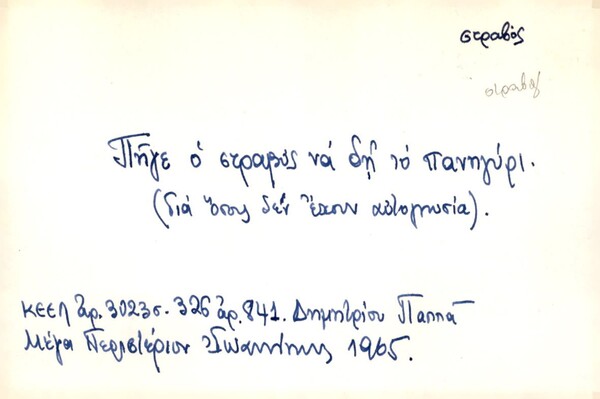 στραβός
στραβός
Πῆγε ὁ στραβός νά δῇ τό πανηγύρι.
(διά ὅσους δέν ἔχουν αὐτογνωσία).
ΚΕΕΛ ἀρ. 3023 σ. 326 ἀρ. 841. Δημητρίου Παππᾶ
Μέγα Περιστέριον Ἰωαννίνων 1965.